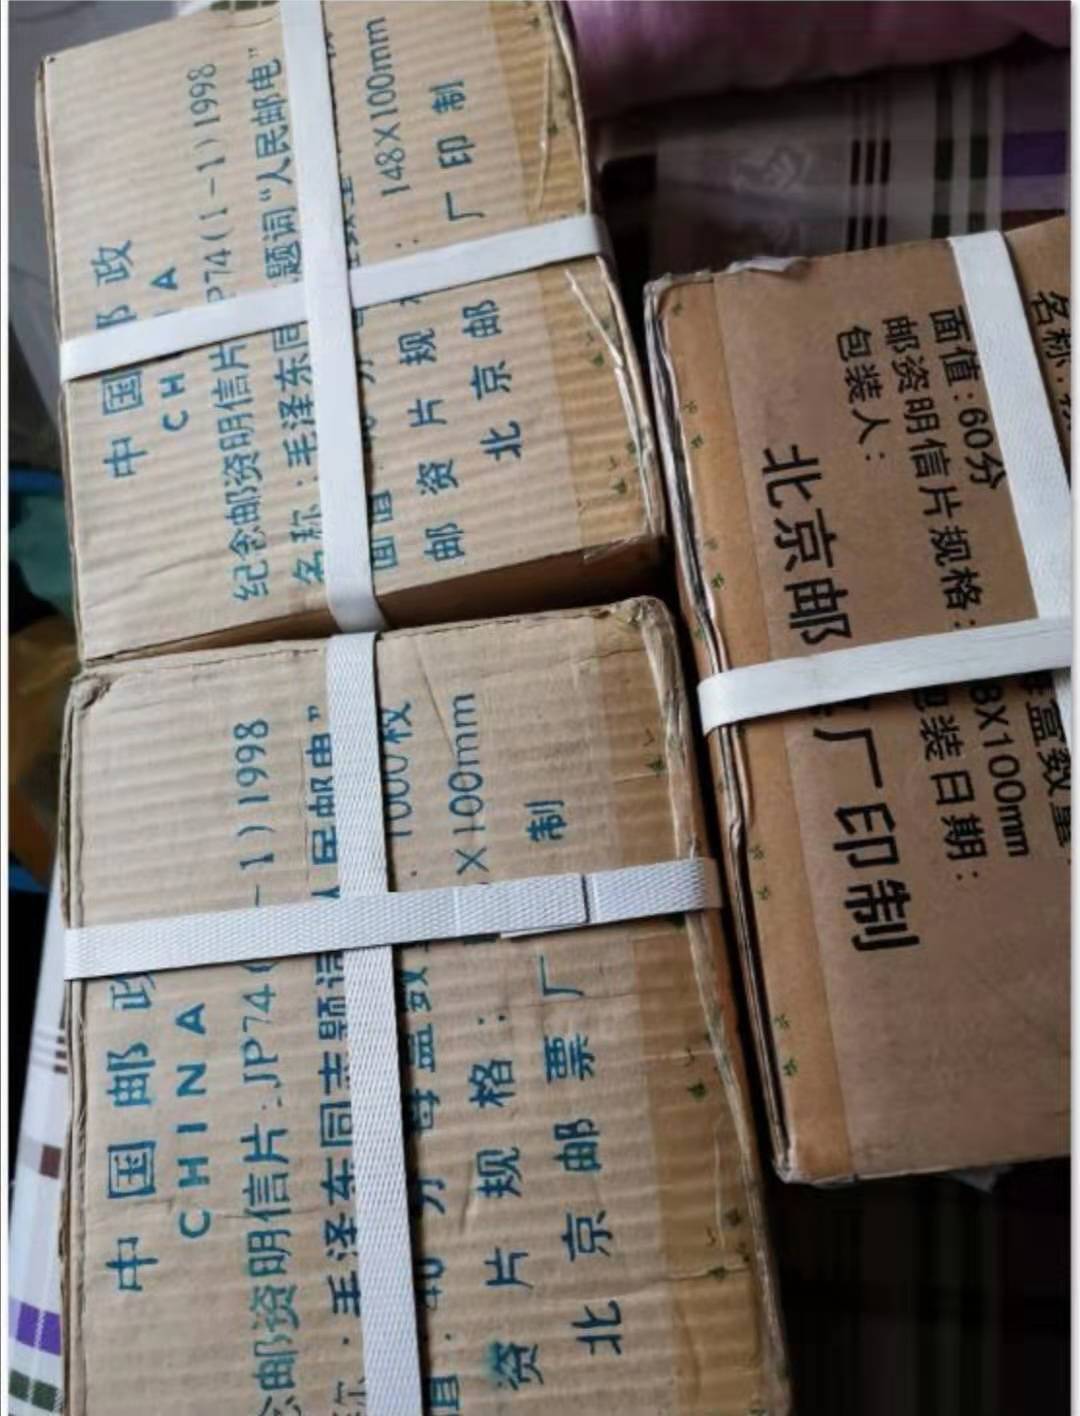 中国邮政
CHINA
纪念邮资明信片 JP74(1-1)1998
名称:毛泽东同 题词“人民邮电”
面值
邮资片规 : 148X100mm
北京邮 厂印制
中国邮政
CHINA
念邮资明信片:JP74( -1)1998
称:毛泽东同志题词 人民邮电”
值:40分 每盒数 1000枚
资片规格: X100mm
北京邮票厂 制
名称:
面值:60分 盒数量
邮资明信片规格: 8X100mm
包装人: 包装日期:
北京邮 厂印制